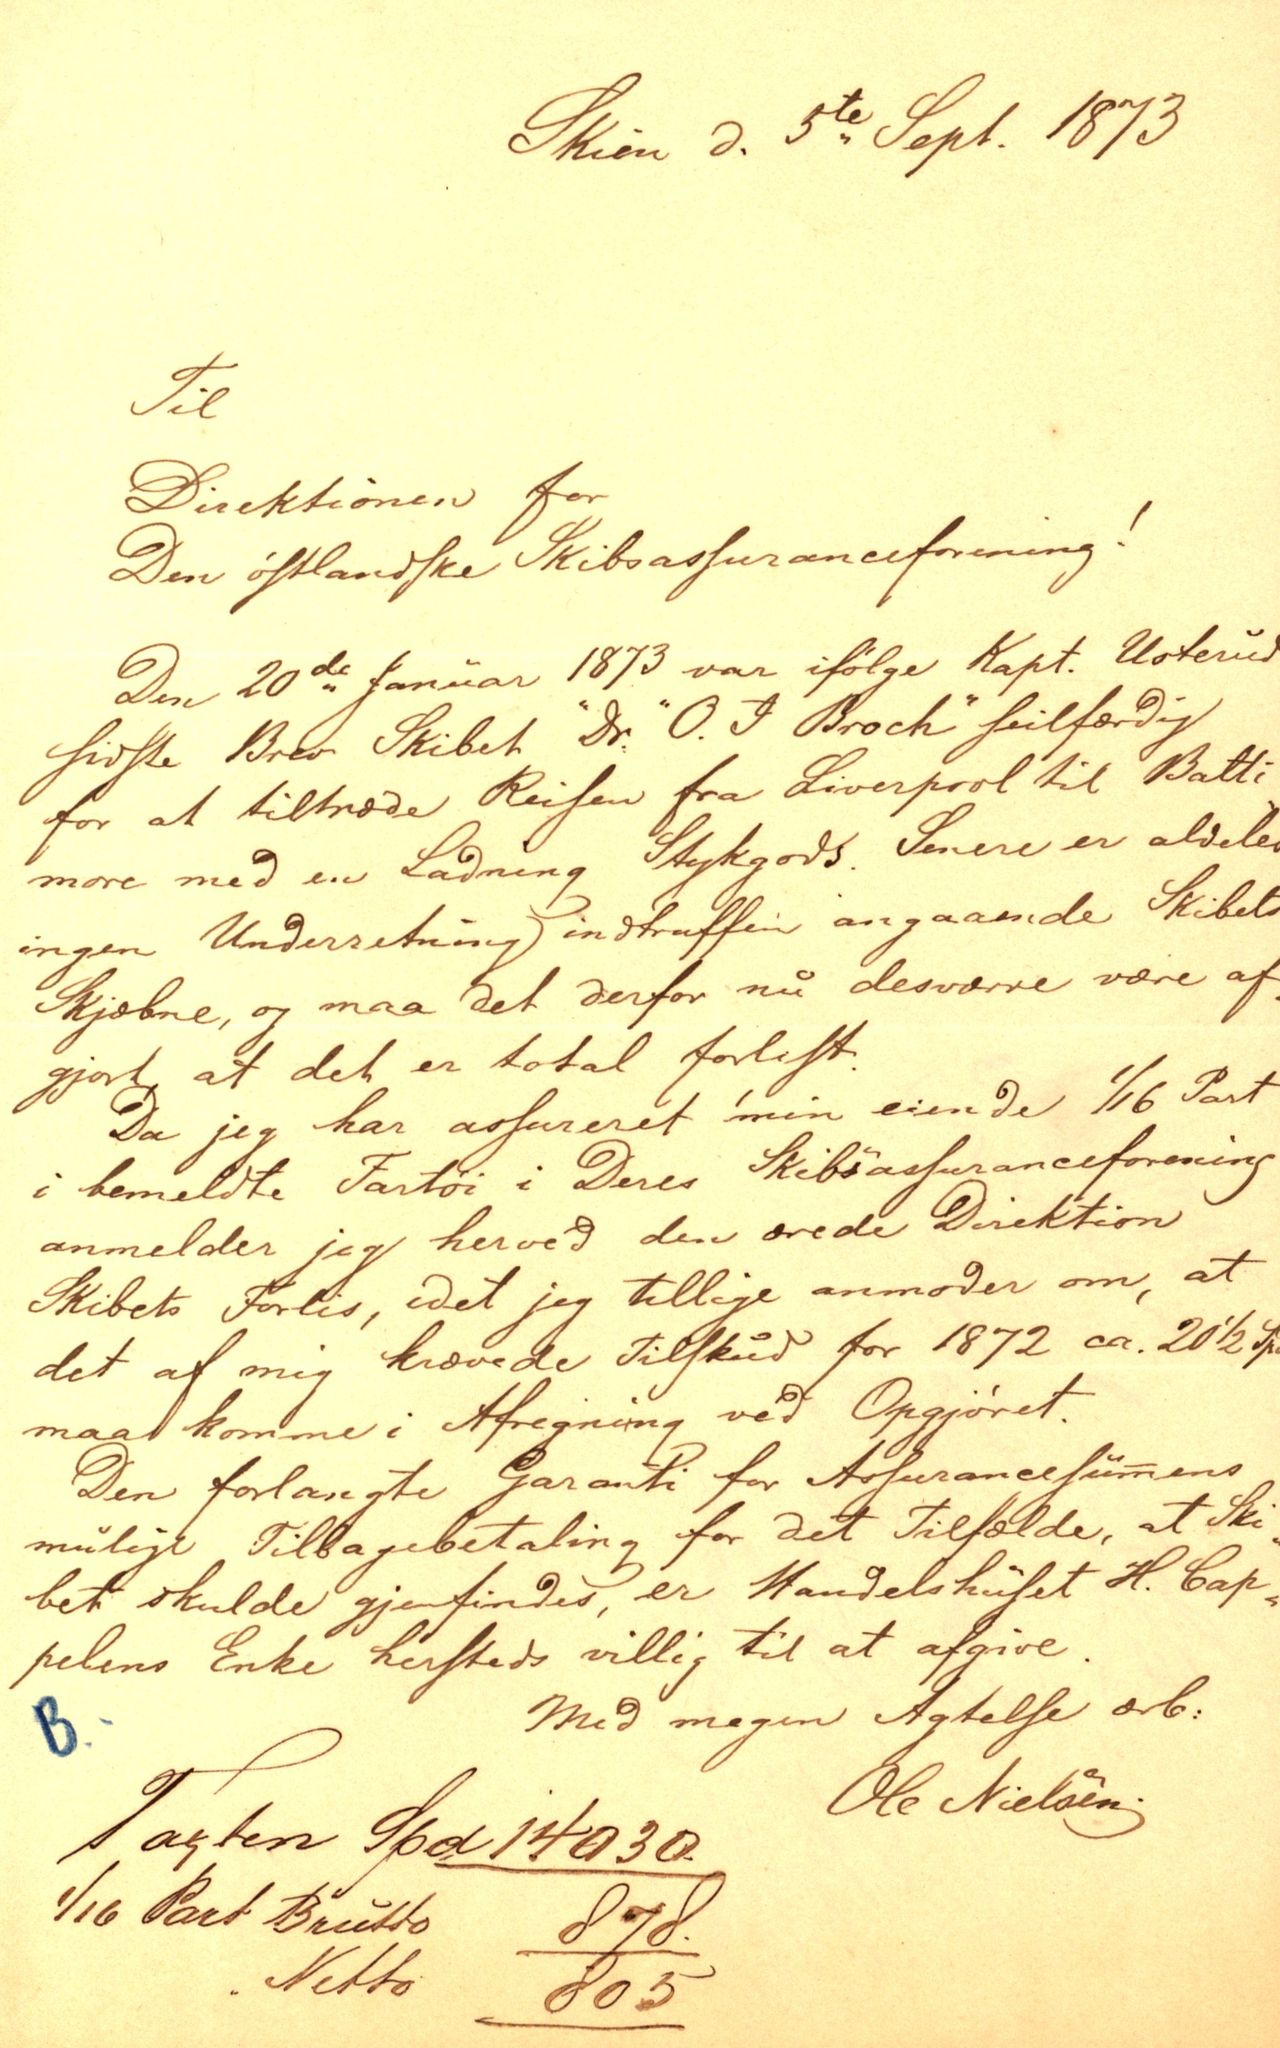 Skien d. 5te Sept. 1873
Til
Direktionen for
Den østlandske Skibsassuranceforening!
Den 20de Januar 1873 var ifølge Kapt. Usterud
sidste Brev Skibet "Dr. "O. J Broch" seilfærdig
for at tiltræde Reisen fra Liverpool til Balti
more med en Ladning Stykgods. Senere er aldeles
ingen Underretning indtruffen angaaende Skibets
Skjæbne, og maa det derfor nu desværre være af-
gjort, at det er total forlist.
Da jeg har assureret min eiende 1/16 Part
i bemeldte Fartøi i Deres Skibsassuranceforening
anmelder jeg herved den ærede Direktion
Skibets Forlis, idet jeg tillige anmoder om, at
det af mig krævede Tilskud for 1872 ca. 20 1/2 Spd
maa komme i Afregning ved Opgjøret.
Den forlangte Garanti for Assurancesum̅ens
mulige Tilbagebetaling for det Tilfælde, at Ski-
bet skulde gjenfindes, er Handelshuset H. Cap-
pelens Enke hersteds villig til at afgive.
Med megen Agtelse ærb:
Ole Nielsen.
B.
Taxten Spd 14030.
1/16 Part Brutto 878.
Netto 805